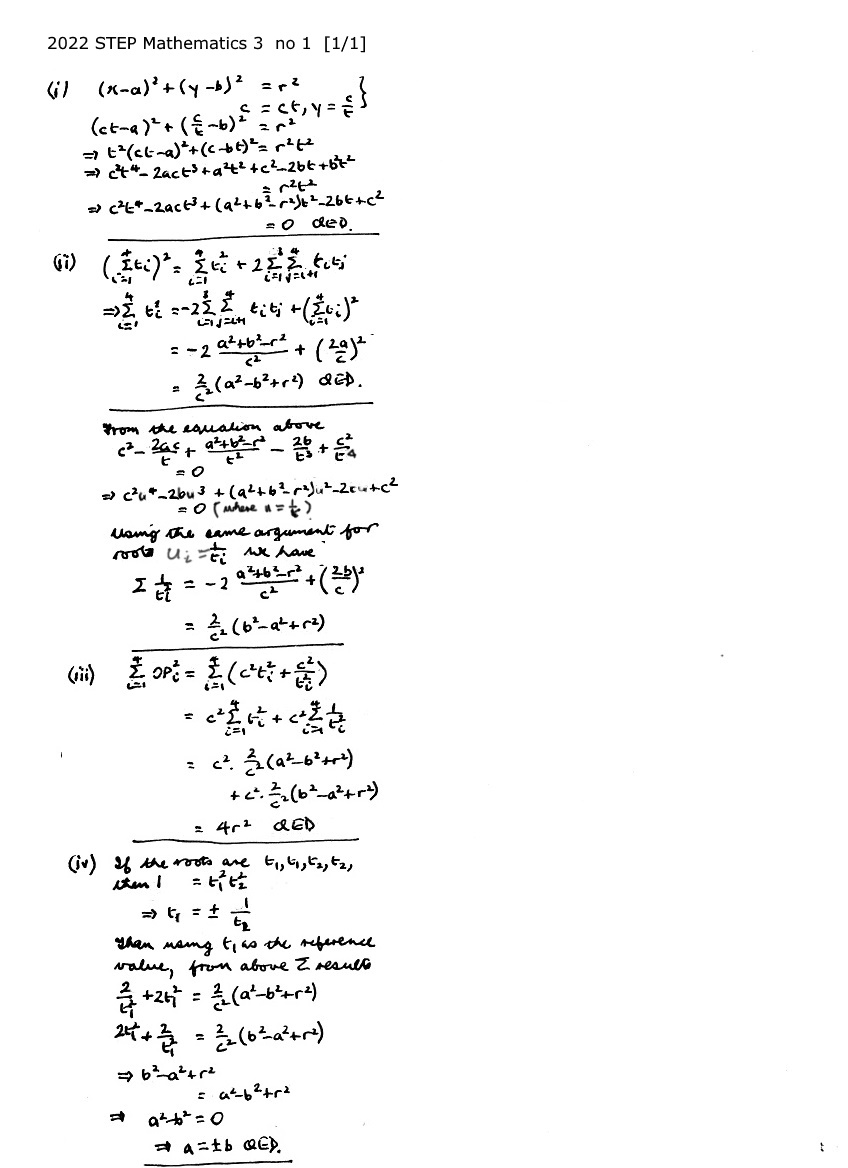 2022 STEP Mathematics 3 no 1 [1/1]
(i) (x-a)² + (y-b)² = r² }
c = ct, y = c/t
(ct-a)² + (c/t - b)² = r²
⇒ t²(ct-a)² + (c-bt)² = r²t²
⇒ c²t⁴ - 2act³ + a²t² + c² - 2bt + b²t²
= r²t²
⇒ c²t⁴ - 2act³ + (a²+b²-r²)t² - 2bt + c²
= 0 QED.
(ii) (Σ_{i=1}^{4} t_i)² = Σ_{i=1}^{4} t_i² + 2 Σ_{i=1}^{3} Σ_{j=i+1}^{4} t_i t_j
⇒ Σ_{i=1}^{4} t_i² = -2 Σ_{i=1}^{3} Σ_{j=i+1}^{4} t_i t_j + (Σ_{i=1}^{4} t_i)²
= -2 (a²+b²-r²)/c² + (2a/c)²
= 2/c² (a²-b²+r²) QED.
From the equation above
c² - 2ac/t + (a²+b²-r²)/t² - 2b/t³ + c²/t⁴
= 0
⇒ c²u⁴ - 2bu³ + (a²+b²-r²)u² - 2cu + c²
= 0 (where u = 1/t)
Using the same argument for
roots u_i = 1/t_i we have
Σ 1/t_i² = -2 (a²+b²-r²)/c² + (2b/c)²
= 2/c² (b²-a²+r²)
(iii) Σ_{i=1}^{4} OP_i² = Σ_{i=1}^{4} (c²t_i² + c²/t_i²)
= c² Σ_{i=1}^{4} t_i² + c² Σ_{i=1}^{4} 1/t_i²
= c². 2/c² (a²-b²+r²)
+ c². 2/c² (b²-a²+r²)
= 4r² QED
(iv) If the roots are t₁, t₁, t₂, t₂,
then 1 = t₁²t₂²
⇒ t₁ = ± 1/t₂
Then using t₁ as the reference
value, from above Σ results
2/t₁² + 2t₁² = 2/c² (a²-b²+r²)
2t₁² + 2/t₁² = 2/c² (b²-a²+r²)
⇒ b²-a²+r²
= a²-b²+r²
⇒ a²-b² = 0
⇒ a = ±b QED.